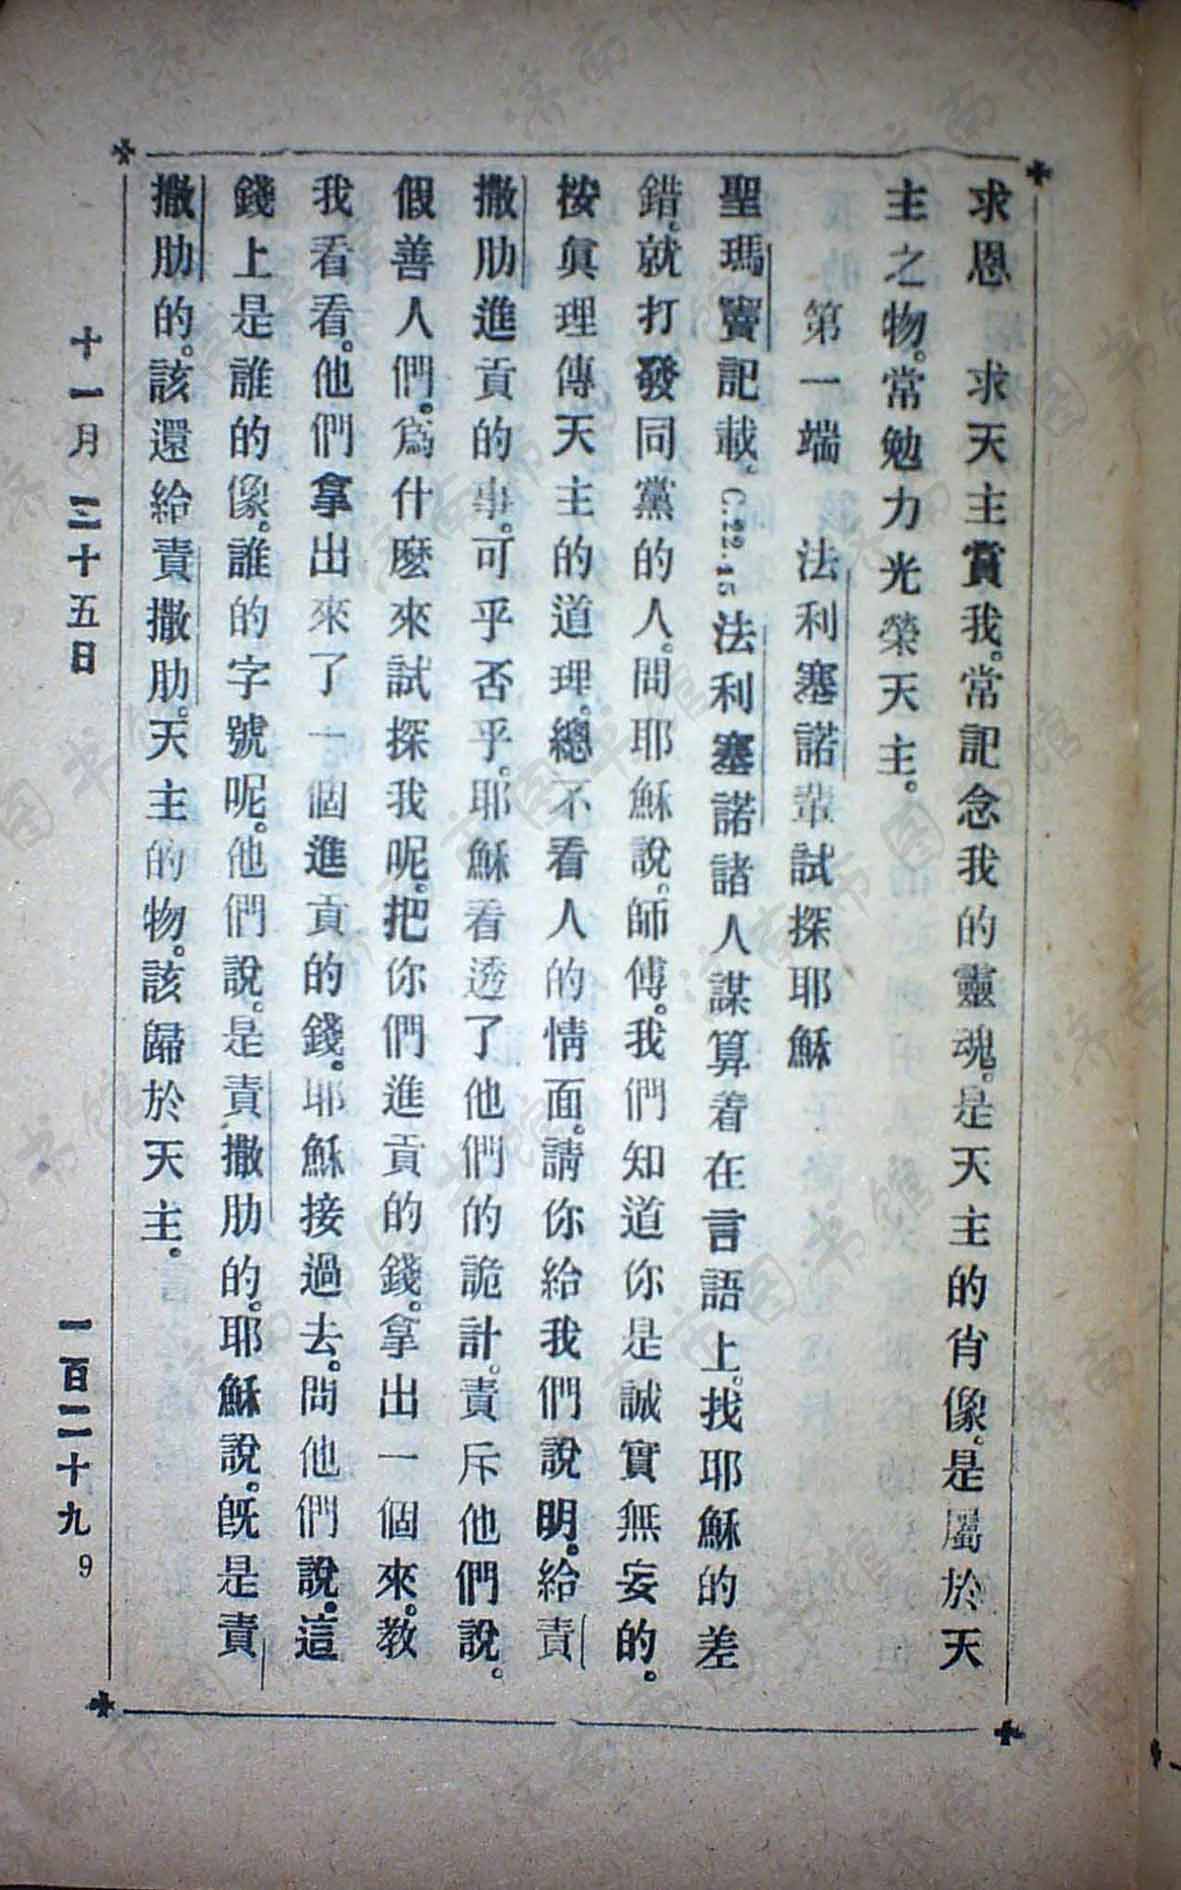 求恩　求天主賞我。常記念我的靈魂。是天主的肖像。是屬於天
主之物。常勉力光榮天主。
第一端　法利塞諾輩試探耶穌
聖瑪竇記載。C.22.15法利塞諾諸人謀算着在言語上。找耶穌的差
錯。就打發同黨的人。問耶穌說。師傅。我們知道你是誠實無妄的。
按眞理傳天主的道理。總不看人的情面。請你給我們說明。給責
撒肋進貢的事。可乎否乎。耶穌看透了他們的詭計。責斥他們說。
假善人們。爲什麼來試探我呢。把你們進貢的錢。拿出一個來。教
我看看。他們拿出來了一個進貢的錢。耶穌接過去。問他們說。這
錢上是誰的像。誰的字號呢。他們說。是責撒肋的。耶穌說。旣是責
撒肋的。該還給責撒肋。天主的物。該歸於天主。
十一月　二十五日　一百二十九 9
济南市图书馆